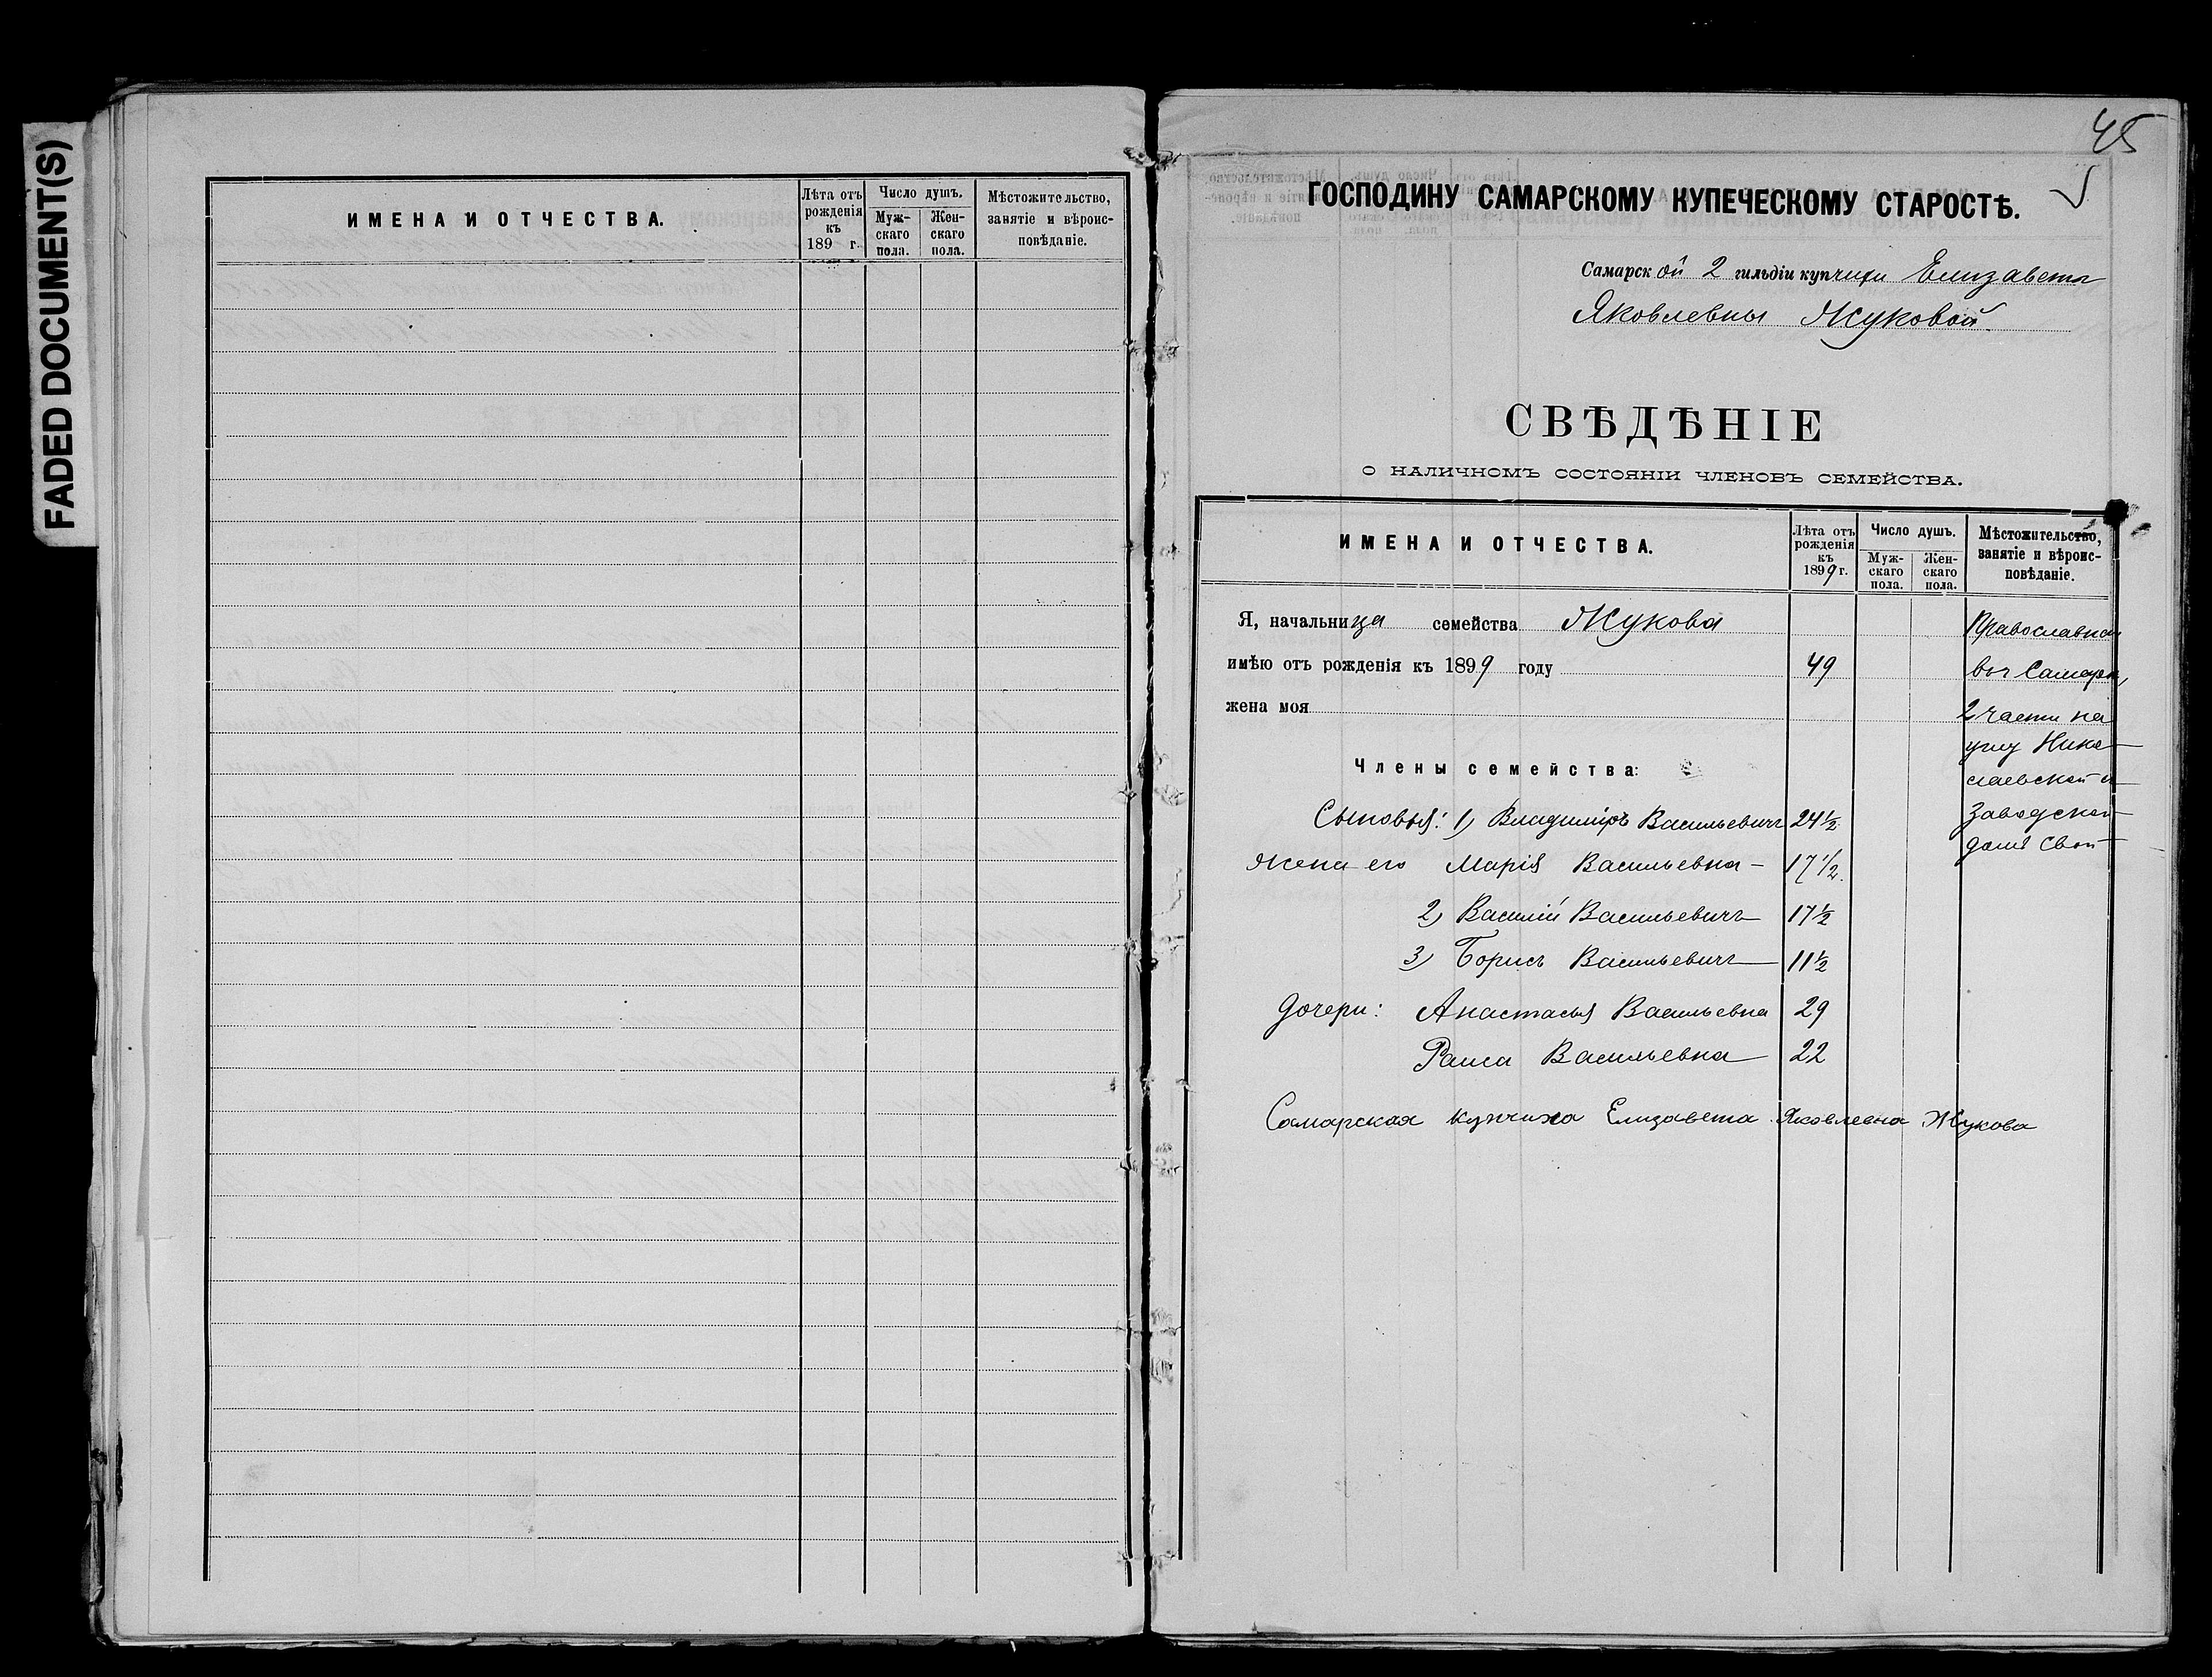 FADED DOCUMENT(S)
ИМЕНА И ОТЧЕСТВА.
Лѣта отъ рожденія къ 189 г.
Число душъ.
Муж- скаго пола.
Жен- скаго пола.
Мѣстожительство, занятіе и вѣроис- повѣданіе.
45
ГОСПОДИНУ САМАРСКОМУ КУПЕЧЕСКОМУ СТАРОСТѢ.
Самарской 2 гильдіи купчихи Елизаветы
Яковлевны Жуковой.
СВѢДѢНІЕ
О НАЛИЧНОМЪ СОСТОЯНІИ ЧЛЕНОВЪ СЕМЕЙСТВА.
ИМЕНА И ОТЧЕСТВА.
Лѣта отъ рожденія къ 1899 г.
Число душъ.
Муж- скаго пола.
Жен- скаго пола.
Мѣстожительство, занятіе и вѣроис- повѣданіе.
Я, начальница семейства Жукова Православная
имѣю отъ рожденія къ 1899 году 49 въ г Самарѣ,
жена моя 2 части на
углу Нико
Члены семейства:
лаевской и
Сыновья: 1) Владиміръ Васильевичъ 24½ Заводской
домъ свой
Жена его Марія Васильевна - 17½.
2) Василій Васильевичъ 17½
3) Борисъ Васильевичъ 11½
Дочери: Анастасья Васильевна 29
Раиса Васильевна 22
Самарская купчиха Елизавета Яковлевна Жукова